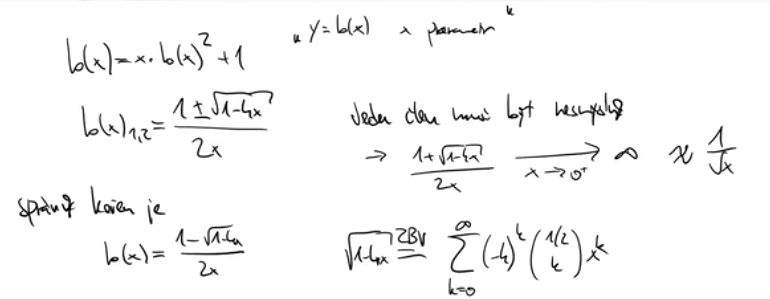 b(x) = x · b(x)² + 1
"y = b(x) x parametr"
b(x)₁,₂ = (1 ± √(1-4x)) / 2x
Jeden člen musí být nesmyslný
→ (1 + √(1-4x)) / 2x → ∞ x → 0⁺ 1/√x
Správný kořen je
b(x) = (1 - √(1-4x)) / 2x
√(1-4x) ZBV = ∑ k=0 ∞ (-4)^k (1/2 k) x^k